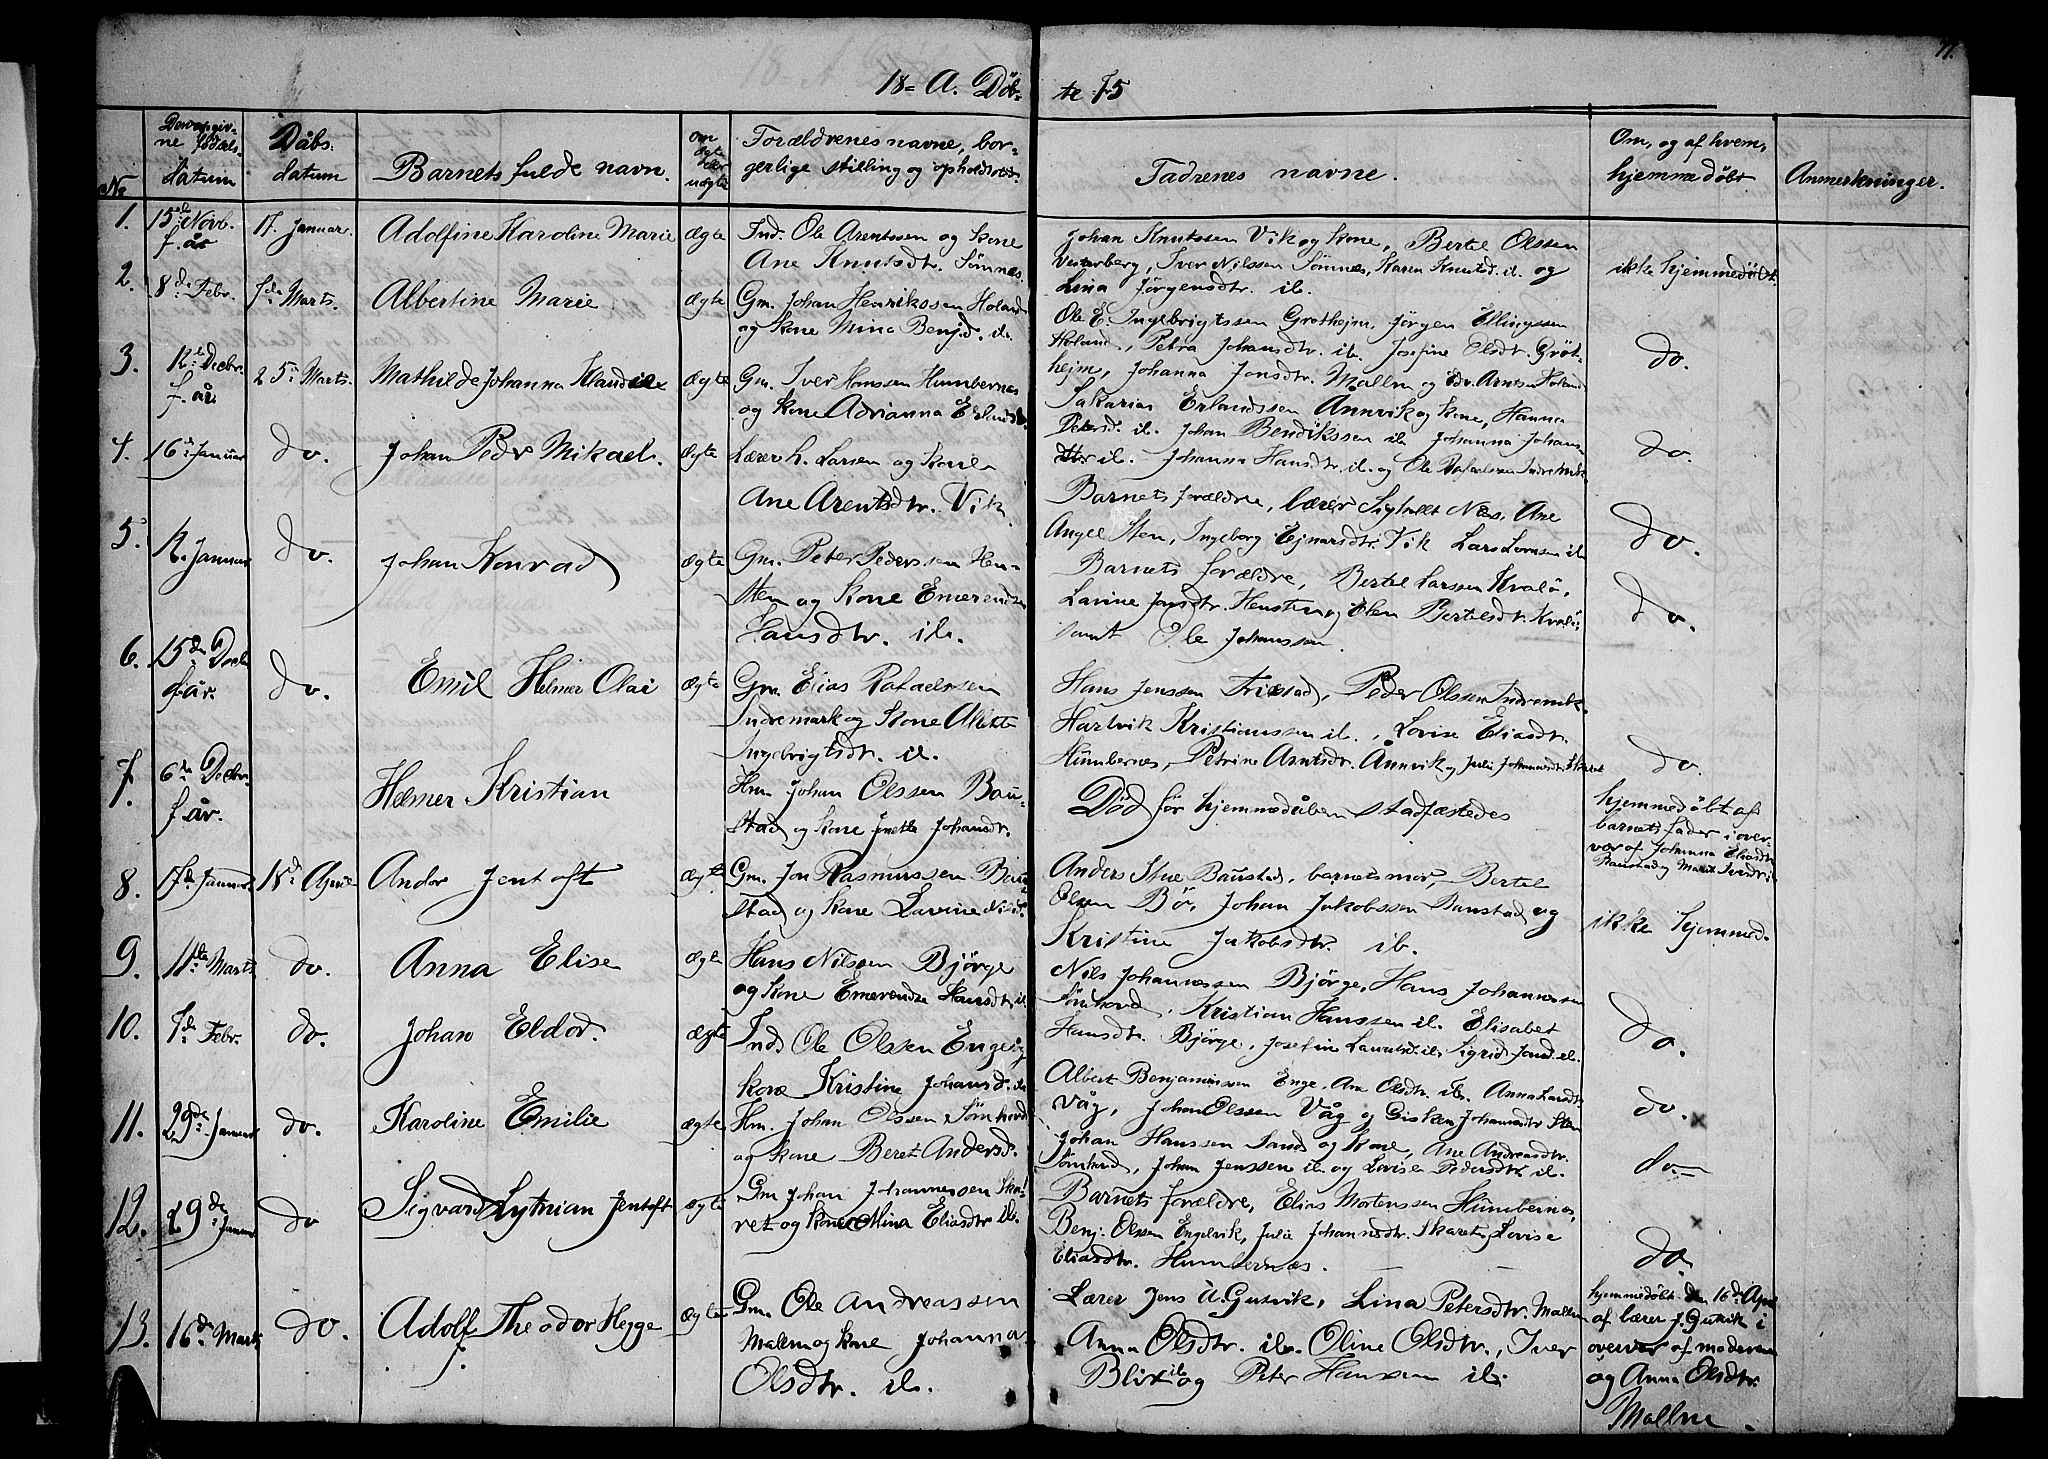 71.
18- A. Döb- te 75
No
Den opgivne fødsels-datum
Dåbs-datum
Barnets fulde navn.
om ægte eller uægte
Forældrenes navne, borgerlige stilling og opholdssted.
Fadrenes navne.
Om, og af hvem, hjemmedöbt
Anmerkninger.
1. 15de Novb. f. år
17. Januar.
Adolfine Karoline Marie
ægte
Ind. Ole Arentssen og kone
Ane Knutsdtr. Sömnes.
Johan Knutssen Vik og kone, Bertel Olssen
Vesterberg, Iver Nilssen Sömnes, Karen Knutsd. ib. og
Lina Jörgensdtr. ib.
ikke hjemmedöbt.
2. 8de Febr.
Marts.
Albertine Marie
ægte
Gm. Johan Henrikssen Holand
og kone Mina Benjd. ib.
Ole E. Ingebrigtssen Grøthejm, Jörgen Ellingssen
Holand, Petra Johansdtr. ib. Josefine Olsdtr. Gröt-
hejm, Johanna Jonsdtr. Mallm og Edv. Arntsen Holand
do.
3. 12te Decbr. f. år
25de Marts.
Mathilde Johanna
ægte
Gm. Iver Hanssen Humbernes
og kone Adrianna Erlandsd.
Sakarias Erlandssen Annvik og kone, Hanna
Petersd. ib. Johan Bendikssen ib. Johanna Johans
dtr ib. Johanna Hansdtr. ib. og Ole Rafaelssen Indremk.
do.
4. 16de Januar
do.
Johan Peder Mikael.
ægte
Lærer L. Larsen og kone
Ane Arentsdtr. Vik.
Barnets forældre, lærer Sigvalt Nes, Ane
Angel Sten, Ingeborg Ejnarsdtr. Vik Lars Lornsen ib
do.
5. 12. Januar
do.
Johan Konrad
ægte
Gm. Peter Pederssen Hen-
sten og kone Emerendse
Hansdtr. ib.
Barnets forældre, Bertel Larssen Kvalö,
Lavine Jonsdtr. Hensten og Elen Bertelsdtr. Kvalö,
samt Ole Johanssen.
do.
6. 15de Decbr f. år.
do.
Emil Helmer Olai
ægte
Gm. Elias Rafaelssen
Indremark og kone Albikte
Ingebrigtsdtr. ib.
Hans Jenssen Tristad, Peder Olssen Indremk.
Hartvik Kristianssen ib., Lovise Eliasdtr.
Humbernes, Petrine Arntsdtr. Ånnvik og Julie Johannesdtr. Skaret
do.
7. 6te Decbr. f. år.
Helmer Kristian
Hm. Johan Olssen Bau-
stad og kone Jnetta Johansdtr.
Död för hjemmedåben stadfæstedes
hjemmedöbt af
barnets fader i over-
vær af Johanna Eliasdtr
Baustad og Marit Iversdtr
8. 17de Januar
18de April
Andor Jentoft
ægte
Gm. Jon Rasmussen Bau-
stad og kone Lavine Nilsd.
Anders Skue Baustad, barnets mor, Bertel
Olsen Bö, Johan Jakobssen Baustad og
Kristine Jakobsdtr. ib.
ikke hjemmed.
9. 11te Marts
do.
Anna Elise
ægte
Hans Nilssen Björge
og kone Emerendse Hansdtr. ib.
Nils Johannessen Björge, Hans Johannessen
Sömhovd, Kristian Hanssen ib. Elisabet
Hansdtr. Björge, Josefine Lauritsd. ib. Sigrid Jonsd. ib.
do.
10. 7de Febr.
do.
Johan Eldor.
ægte
Inds Ole Olssen Enge og
kone Kristine Johansd. ib
Albert Benjaminssen Enge. Ane Olsdtr. ib. Anna Larsdtr.
Våg, Johan Olssen Våg og Gisken Johannesdtr. Sten
do.
11. 29de Januar
do.
Karoline Emilie
ægte
Hm. Johan Olssen Sömhovd
og kone Beret Andersd.
Johan Hanssen Sand og kone, Ane Andreasdtr.
Sömhovd, Johan Jenssen ib. og Lovise Pedersdtr. ib.
do
12. 29de Januar
do
Sigvard Jentoft
ægte
Gm Johan Johannessen Ska-
ret og kone Mina Eliasdtr ib.
Barnets forældre, Elias Mortenssen Humbernes,
Benj. Olssen Engelvik, Julie Johannsdtr. Skaret og Lovise
Eliasdtr. Humbernæs.
do.
13. 16de Marts
do.
Adolf Theodor Hegge
ægte
Gm. Ole Andreassen
Mallm og kone Johanna
Olsdtr. ib.
Lærer Jens A. Gutvik, Lina Petersdtr. Mallm
Anna Olsdtr. ib. Oline Olsdtr., Iver
Blix ib og Peter Hanssen ib.
hjemmedöbt den 16de April
af lærer J. Gutvik i
overvær af moderen
og Anna Olsdtr.
Mallm.